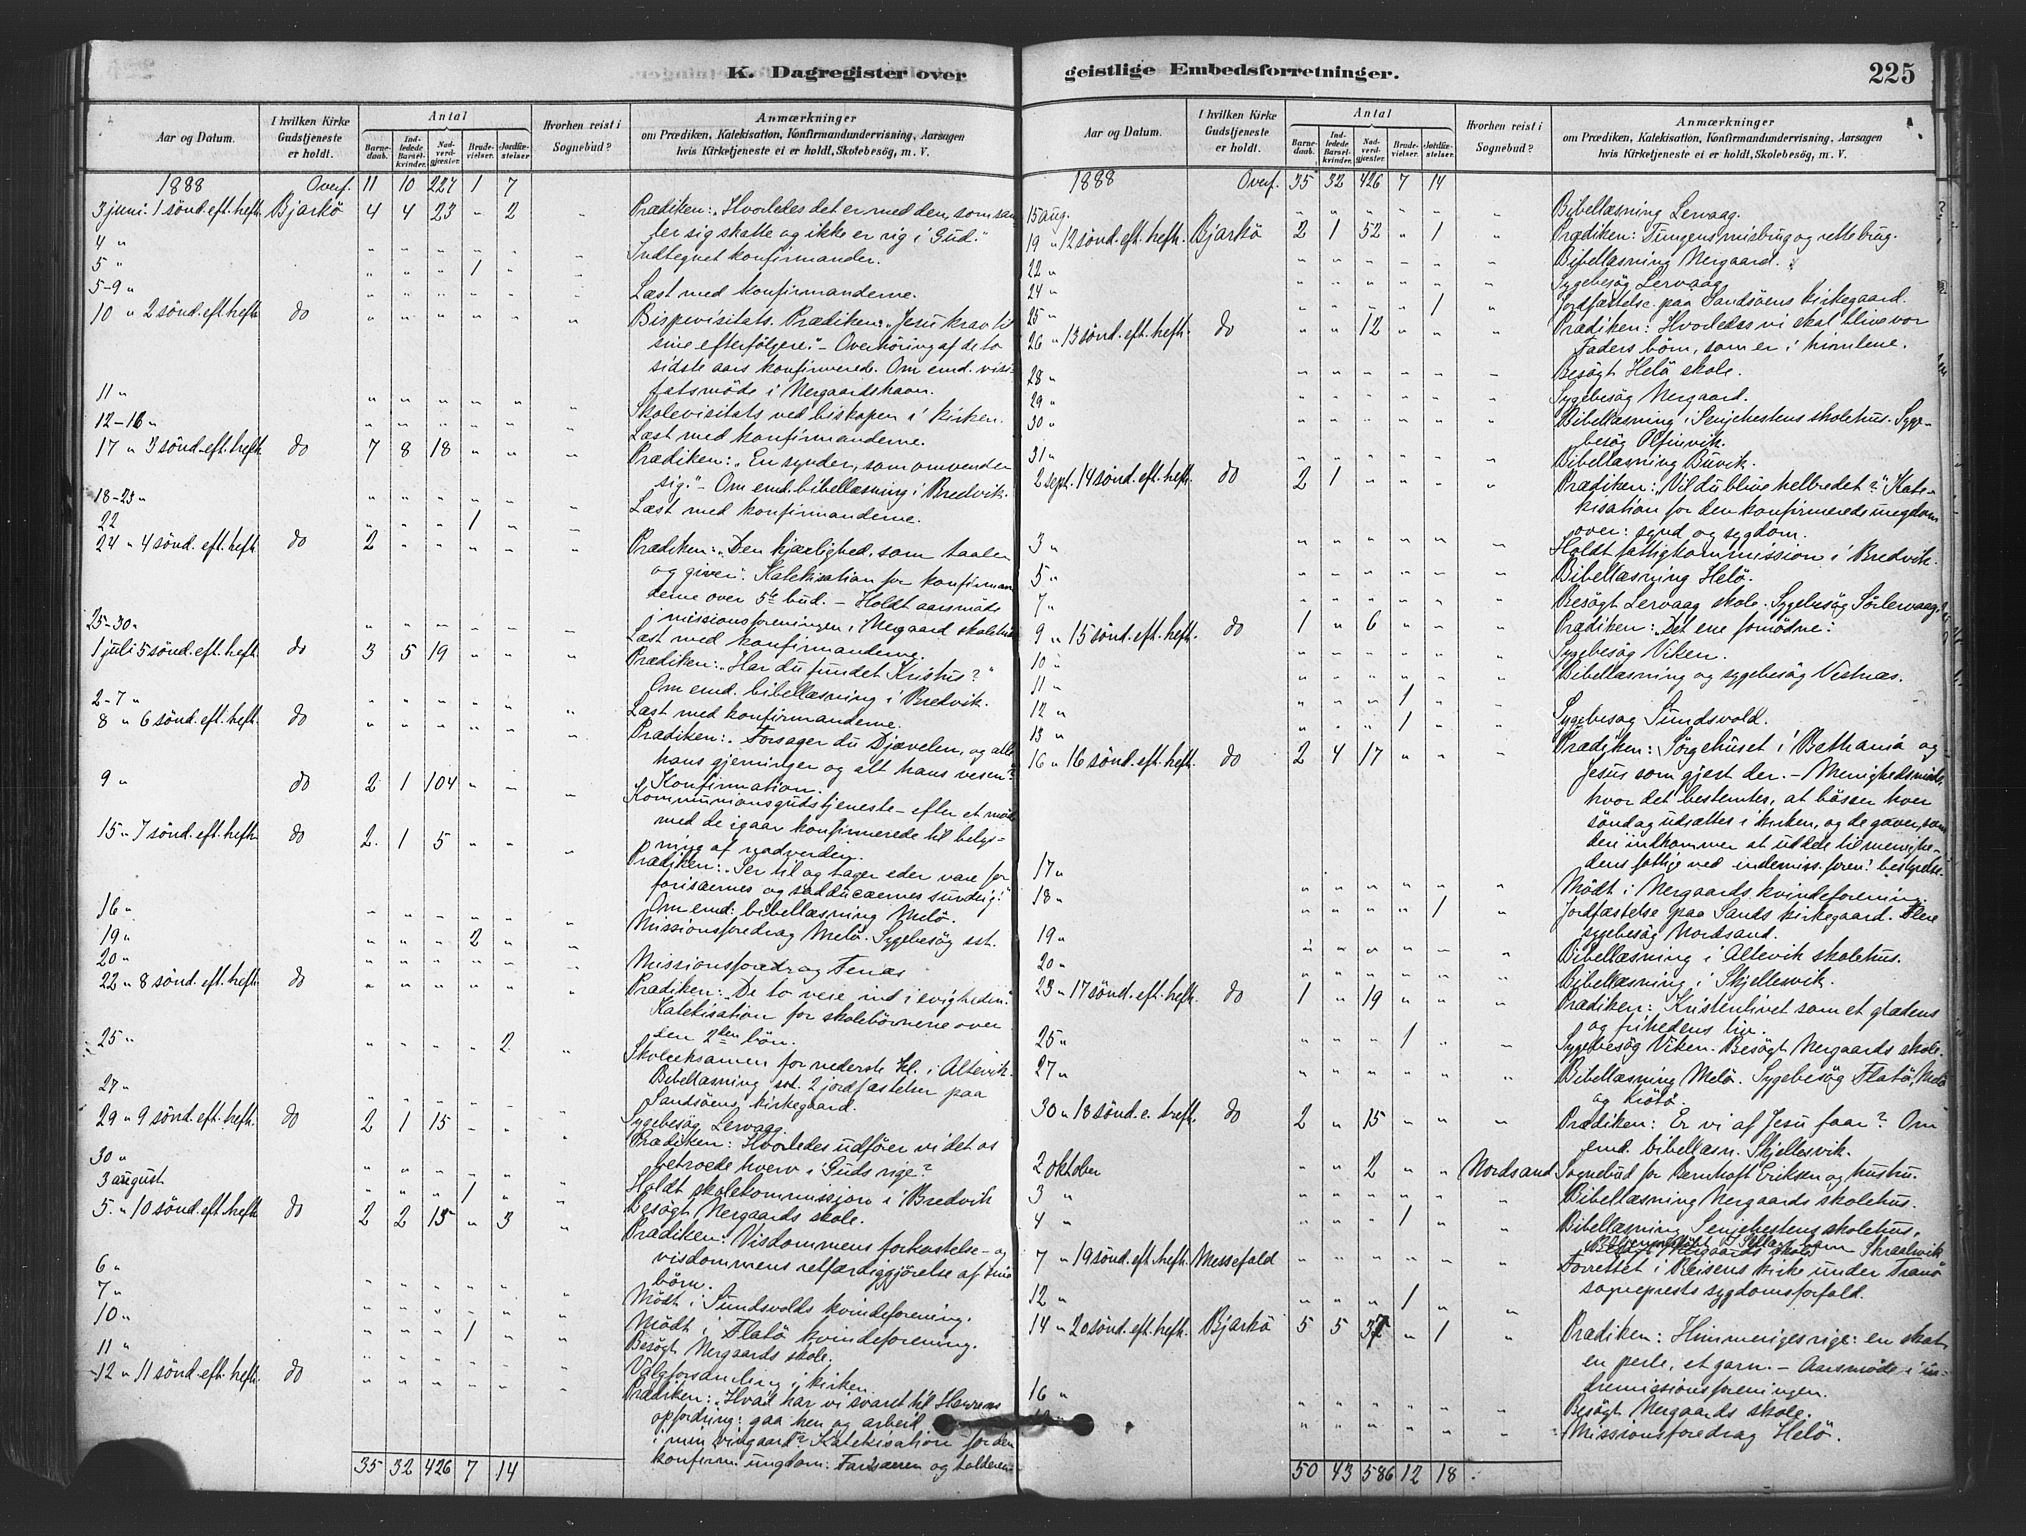 K. Dagregister over
Aar og Datum.
I hvilken Kirke Gudstjeneste er holdt.
Antal
Barnedaab.
Indledede Barselkvinder.
Nadverdgjester.
Brudevielser.
Jordfæstelser
Hvorhen reist i Sognebud?
Anmærkninger
om Prædiken, Katekisation, Konfirmandundervisning, Aarsagen
hvis Kirketjeneste ei er holdt, Skolebesøg, m. V.
1888 Overf. 11 10 227 1 7
3 juni. 1 sönd. eft. hefh. Bjarkö 4 4 23 " 2 " Prædiken: „Hvorledes det er med den, som sam
ler sig skatte og ikke er rig i Gud."
4 " Indtegnet konfirmander.
5 " 1
5-9 " Læst med konfirmanderne.
10 " 2 sönd. eft. hefh. do Bispevisitats. Prædiken: „Jesu krav til
sine efterfølgere." - Overhöring af de to
sidste aars konfirmerede. Om emd. visi-
tatsmöde i Nergaardshavn.
11 " Skolevisitats ved biskopen i kirken.
12-16 " Læst med konfirmanderne.
17 " 3 sönd. eft. hefh. do 7 8 18 " " " Prædiken: „En synder, som omvender
sig." - Om emd. bibellæsning i Bredvik.
18-23 " Læst med konfirmanderne.
22 1
24 " 4 sönd. eft. hefh. do 2 " " " " " Prædiken: „Den kjærlighed, som taaler
og giver." Katekisation for konfirman
derne over 5te bud. - Holdt aarsmöde
i missionsforeningen i Nergaard skolehus
25-30 " Læst med konfirmanderne.
1 juli 5 sönd. eft. heft. do 3 5 19 " " " Prædiken: „Har du fundet Kristus?"
Om emd. bibellæsning i Bredvik.
2-7 " Læst med konfirmanderne.
8 " 6 sönd. eft. heft. do Prædiken: „Forsager du Djævelen, og alle
hans gjerninger og alt hans vesen?"
Konfirmation.
9 " do 2 1 104 " " " Kommunionsgudstjeneste - efter et möde
med de igaar konfirmerede til belys-
ning af nadverden.
15 " 7 sönd. eft. hefh. do 2 1 5 " " " Prædiken: „Ser til og tager eder vare for
farisæernes og sadducæernes surdeig!"
Om emd: bibellæsning Melö.
16 " Missionsforedrag Melö. Sygebesög sst.
19 " 2
20 " Missionsforedrag
22 " 8 sönd. eft. hefh. do Prædiken: „De to veie ind i evigheden."
Katekisation for skolebörnene over
den 2den bön.
25 " 2 Skoleeksamen for nederste kl. i Altevik.
Bibellæsning sst. 2 jordfæstelser paa
Sandsöens kirkegaard.
27 " Sygebesög Lervaag.
29 " 9 sönd. eft. hefh. do 2 1 15 " " " Prædiken: Hvorledes udfører vi det os
betroede hverv i Guds rige?
30 " Holdt skolekommission i Bredvik
3 august 1 Besögt Nergaards skole.
5. " 10 sönd. eft. hefh. do 2 2 15 " 3 " Prædiken: Visdommens forkastelse - og
visdommens retfærdiggjörelse af sine
börn.
6 " Mödt i Sundsvolds kvindeforening.
7 " Mödt i Flatö kvindeforening.
10 " 1 Besögt Nergaards skole.
11 " Valgforsamling i kirken.
12 " 11 sönd. eft. hefh. do Prædiken: „Hvad har vi svaret til Herrens
opfordring: gaa hen og arbeid
i min vingaard?" Katekisation for den
konfirm. ungdom: Farisæeren og tolderen.
35 32 426 7 14
geistlige Embedsforretninger.
225
Aar og Datum.
I hvilken Kirke Gudstjeneste er holdt.
Antal
Barnedaab.
Indledede Barselkvinder.
Nadverdgjester.
Brudevielser.
Jordfæstelser.
Hvorhen reist i Sognebud?
Anmærkninger
om Prædiken, Katekisation, Konfirmandundervisning, Aarsagen
hvis Kirketjeneste ei er holdt, Skolebesøg, m. V.
1888 Overf. 35 32 426 7 14
15 aug. Bibellæsning Lervaag.
19 " 12 sönd. eft. hefh. Bjarkö 2 1 52 " 1 " Prædiken: Tungens misbrug og rette brug.
22 " Bibellæsning Nergaard.
24 " Sygebesög Lervaag.
25 " 1 Jordfæstelse paa Sandsöens kirkegaard.
26 " 13 sönd. eft. hefh. do " " 12 " " " Prædiken: Hvorledes vi skal blive vor
Faders börn, som er i himlene.
28 " Besögt Helö skole.
29 " Sygebesög Nergaard.
30 " Bibellæsning i Senjehestens skolehus. Syge-
besög
31 " Bibellæsning Buvik.
2 sept. 14 sönd. eft. hefh. do 2 1 " " " " Prædiken: „Vil du blive helbredet?" Kate-
kisation for den konfirmerede ungdom
over: synd og sygdom.
3 " Holdt fattigkommission i Bredvik.
5 " Bibellæsning Helö.
7 " Besögt Lervaag skole. Sygebesög Sörlervaag.
9 " 15 sönd. eft. hefh. do 1 " 6 " " " Prædiken: „Det ene fornödne."
10 " Sygebesög Viken.
11 " Bibellæsning og sygebesög Vestnæs.
12 " 1
13 " 1 Sygebesög Sundsvold.
16 " 16 sönd. eft. hefh. do 2 4 17 " " " Prædiken: Sörgehuset i Bethania og
Jesus som gjest der. - Menighedsmöde,
hvor det bestemtes, at bösser hver
söndag udsættes i kirken, og de gaver, som
deri indkommer at uddele til menighe-
dens fattige ved indremiss. foren. bestyrelse.
17 " Mödt i Nergaards kvindeforening.
18 " 1 Jordfæstelse paa Sands kirkegaard. Flere
sygebesög Nordsand.
19 " Bibellæsning i Altevik skolehus.
20 " Bibellæsning i Skjellesvik.
23 " 17 sönd. eft. hefh. do 1 " 19 " " " Prædiken: Kristenlivet som et glædens
og frihedens liv.
25 " 1 Sygebesög Viken. Besögt Nergaards skole.
27 " Bibellæsning Melö. Sygebesög Flatö, Melö
og Krötö.
30 " 18 sönd. e. trefh. do 2 " 15 " " " Prædiken: Er vi af Jesu faar? Om
emd. bibellæsn. Skjellesvik.
2 oktober " " 2 " " Nordsand Sognebud for Bernhoft Eriksen og hustru.
3 " Bibellæsning Nergaards skolehus.
4 " 1 Bibellæsning Senjehestens skolehus.
Besögt Nergaards skole
7 " 19 sönd. eft. hefh. Messefald Forrettet i Reisens kirke under Tranö
sogneprests sygdomsforfald.
12 " 1
14 " 20 sönd. eft. hefh. Bjarkö 5 5 37 " 1 " Prædiken: Himmeriges rige: en skat
en perle, et garn. - Aarsmöde i in-
dremissionsforeningen.
16 " Besögt Nergaards skole.
Missionsforedrag Helö.
50 43 586 12 18